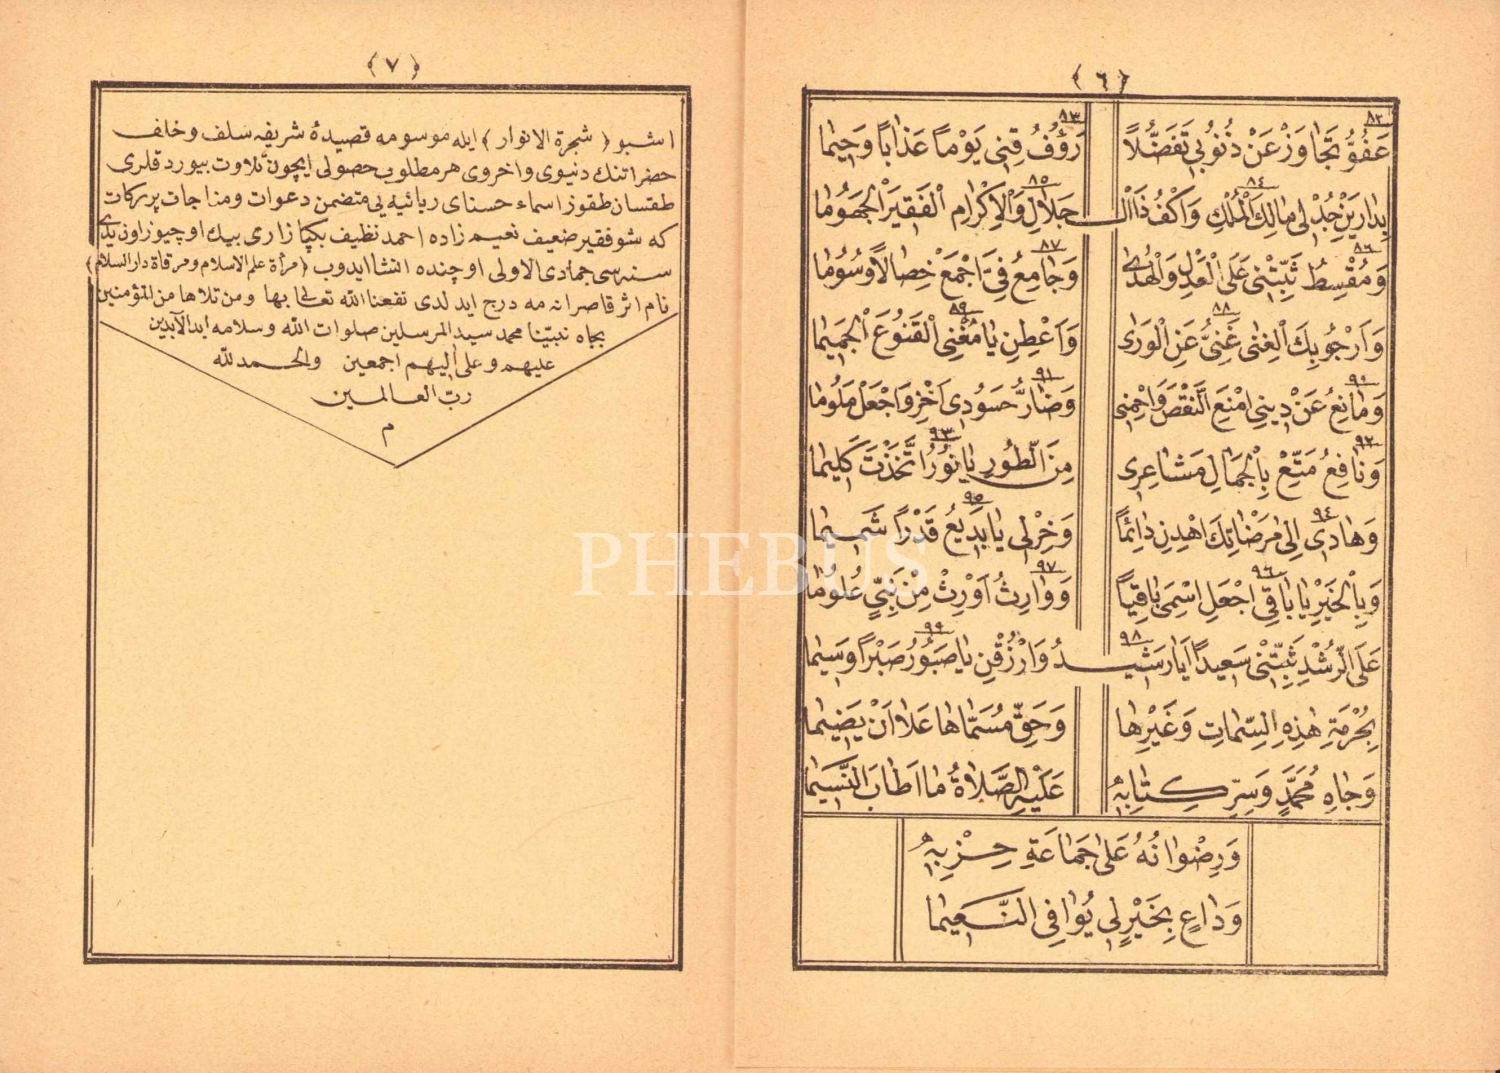 ﴿٦﴾
٨٢ ٩٣
عَفُوُّ تَجَاوَزْ عَنْ ذُنُوبِي تَفَضُّلاً رَؤُفُ قِنِي يَوْمًا عَذَابًا وَحِيمَا
٨٤ ٨٥
بِدَارَيْنِ جُدْ لِي مَالِكَ الْمُلْكِ وَاكْفُ ذَا الْـ جَلَالِ وَالْاِكْرَامِ الْفَقِيرَ الْجَهُومَا
٨٦ ٨٧
وَمُقْسِطُ ثَبِّتْنِي عَلَى الْعَدْلِ وَالْهُدَى وَجَامِعُ فِيَّ اجْمَعْ خِصَالاً وَسُومَا
٨٨ ٨٩
وَاَرْجُو بِكَ الْغِنَى غَنِيُّ عَنِ الْوَرَى وَاَعْطِنِ يَا مُغْنِي الْقُنُوعَ الْجَمِيمَا
٩٠ ٩١
وَمَانِعُ عَنْ دِينِي امْنَعِ النَّقْصَ وَاحْمِنِي وَضَارُّ حَسُودِي اَخْزِ وَاجْعَلْ مَلُومَا
٩٢ ٩٣
وَنَافِعُ مَتِّعْ بِالْجَمَالِ مَشَاعِرِي مِنَ الطُّورِ يَا نُورُ اتَّخَذْتَ كَلِيمَا
٩٤ ٩٥
وَهَادِى اِلَى مَرْضَاتِكَ اهْدِنِ دَائِمًا وَخِرْ لِي يَا بَدِيعُ قَدْرًا شَمِيمَا
٩٦ ٩٧
وَبِالْخَيْرِ يَا بَاقِي اجْعَلِ اسْمِي بَاقِيًا وَوَارِثُ اَوْرِثْ مِنْ نَبِيٍّ عُلُومَا
٩٨ ٩٩
عَلَى الرُّشْدِ ثَبِّتْنِي سَعِيدًا اَيَا رَشِيـدُ وَارْزُقْنِ يَا صَبُورُ صَبْرًا وَسِيمَا
بِحُرْمَةِ هٰذِهِ السِّمَاتِ وَغَيْرِهَا وَحَقِّ مُسَمَّاهَا عَلَا اَنْ يَضِيمَا
وَجَاهِ مُحَمَّدٍ وَسِرِّ كِتَابِهِ عَلَيْهِ الصَّلَاةُ مَا اَطَابَ النَّسِيمَا
وَرِضْوَانُهُ عَلَى جَمَاعَةِ حِزْبِهِ
وَدَاعٍ بِخَيْرٍ لِي يُوَافِي النَّعِيمَا
﴿٧﴾
اشبو ﴿ شجرة الانوار ﴾ ايله موسومه قصيدۀ شريفه سلف وخلف
حضراتنك دنيوى واخروى هر مطلوب حصولى ايچون تلاوت بيوردقلرى
طقسان طقوز اسماء حسناى ربانيه يى متضمن دعوات ومناجات پربركات
كه شو فقير ضعيف نعيم زاده احمد نظيف بكپازارى بيك اوچيوز اون يدى
سنه سى جمادى الاولى اوچنده انشا ايدوب ﴿مرأة علم الاسلام ومرقاة دار السلام﴾
نام اثر قاصرانه مه درج ايلدى نفعنا الله تعالى بها ومن تلاها من المؤمنين
بجاه نبينا محمد سيد المرسلين صلوات الله وسلامه ابد الآبدين
عليهم وعلى اليهم اجمعين والحمد لله
رب العالمين
م
PHEBUS